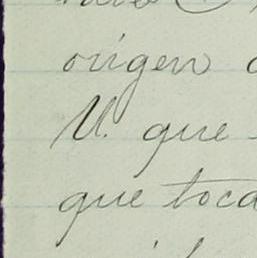 origen
U. que
que toca